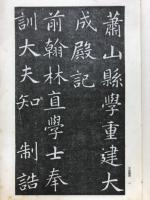 蕭山縣學重建大
成殿記
前翰林直學士奉
訓大夫知 制誥